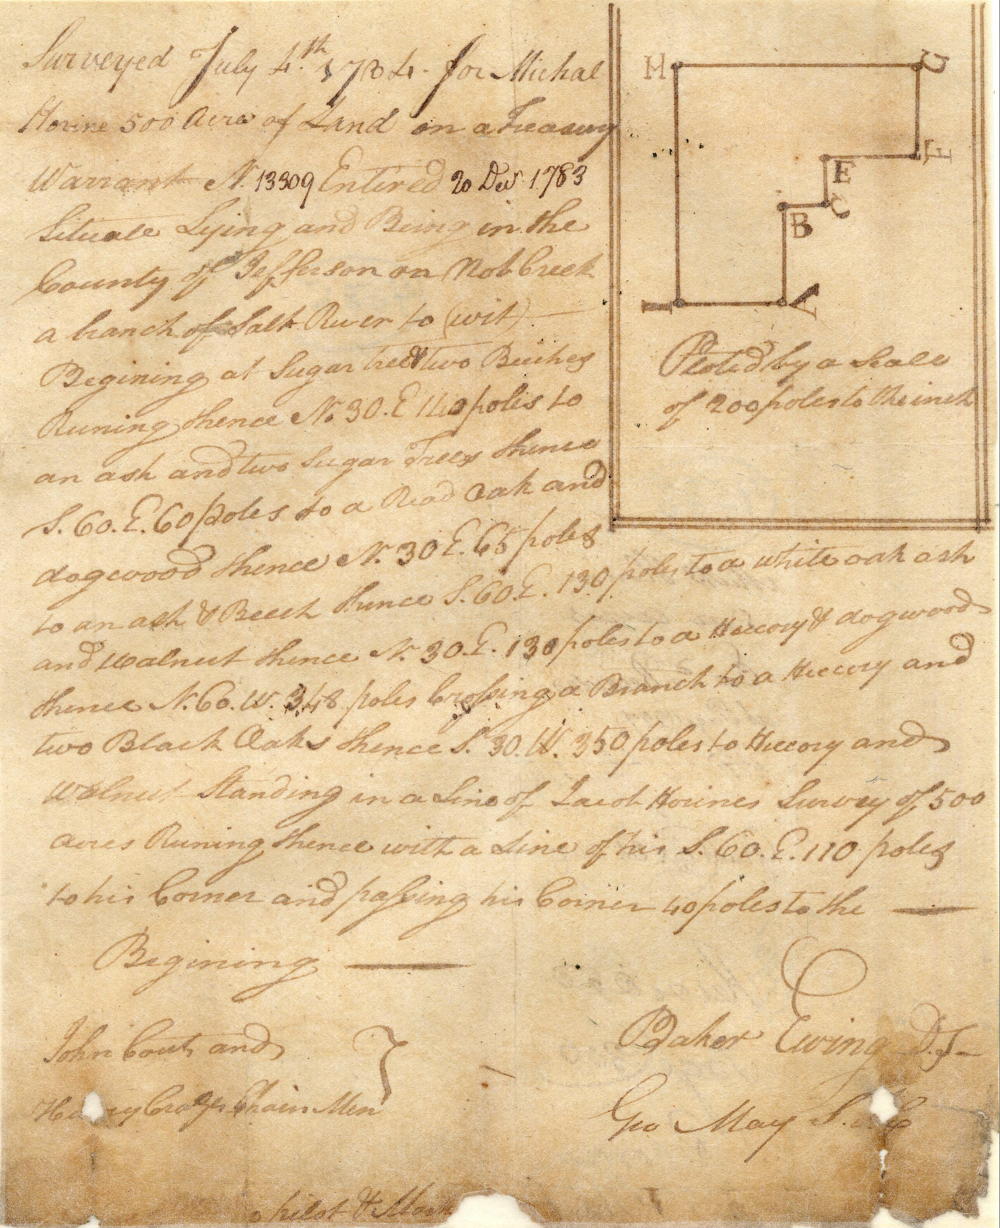 Surveyed July 4th 1784 for Michal
Horine 500 Acres of Land on a Treasury
Warrant N. 13309 Entered 20 Decr 1783
Situate Lying and Being in the
County of Jefferson on Nob Creek
a branch of Salt River to (wit)
Begining at Sugar tree & two Beeches
Runing thence N. 30. E 140 poles to
an ash and two Sugar Trees thence
S. 60. E. 60 poles to a Read Oak and
dogwood thence N. 30 E. 65 poles
to an ash & Beech thence S. 60. E. 130 poles to a white oak ash
and walnut thence N. 30. E. 130 poles to a Hiccory & dogwood
thence N. 60. W. 348 poles Crossing a Branch to a Hiccory and
two Black Oaks thence S. 30. W. 350 poles to Hiccory and
Walnut Standing in a Line of Jacob Horines Survey of 500
acres Runing thence with a Line of his S. 60. E. 110 poles
to his Corner and passing his Corner 40 poles to the
Begining
H
D
F
E
C
B
A
I
Ploted by a Scale
of 200 poles to the inch
John Couts and
Chain Men
Baker Ewing D. S
Geo May S.
& Mark